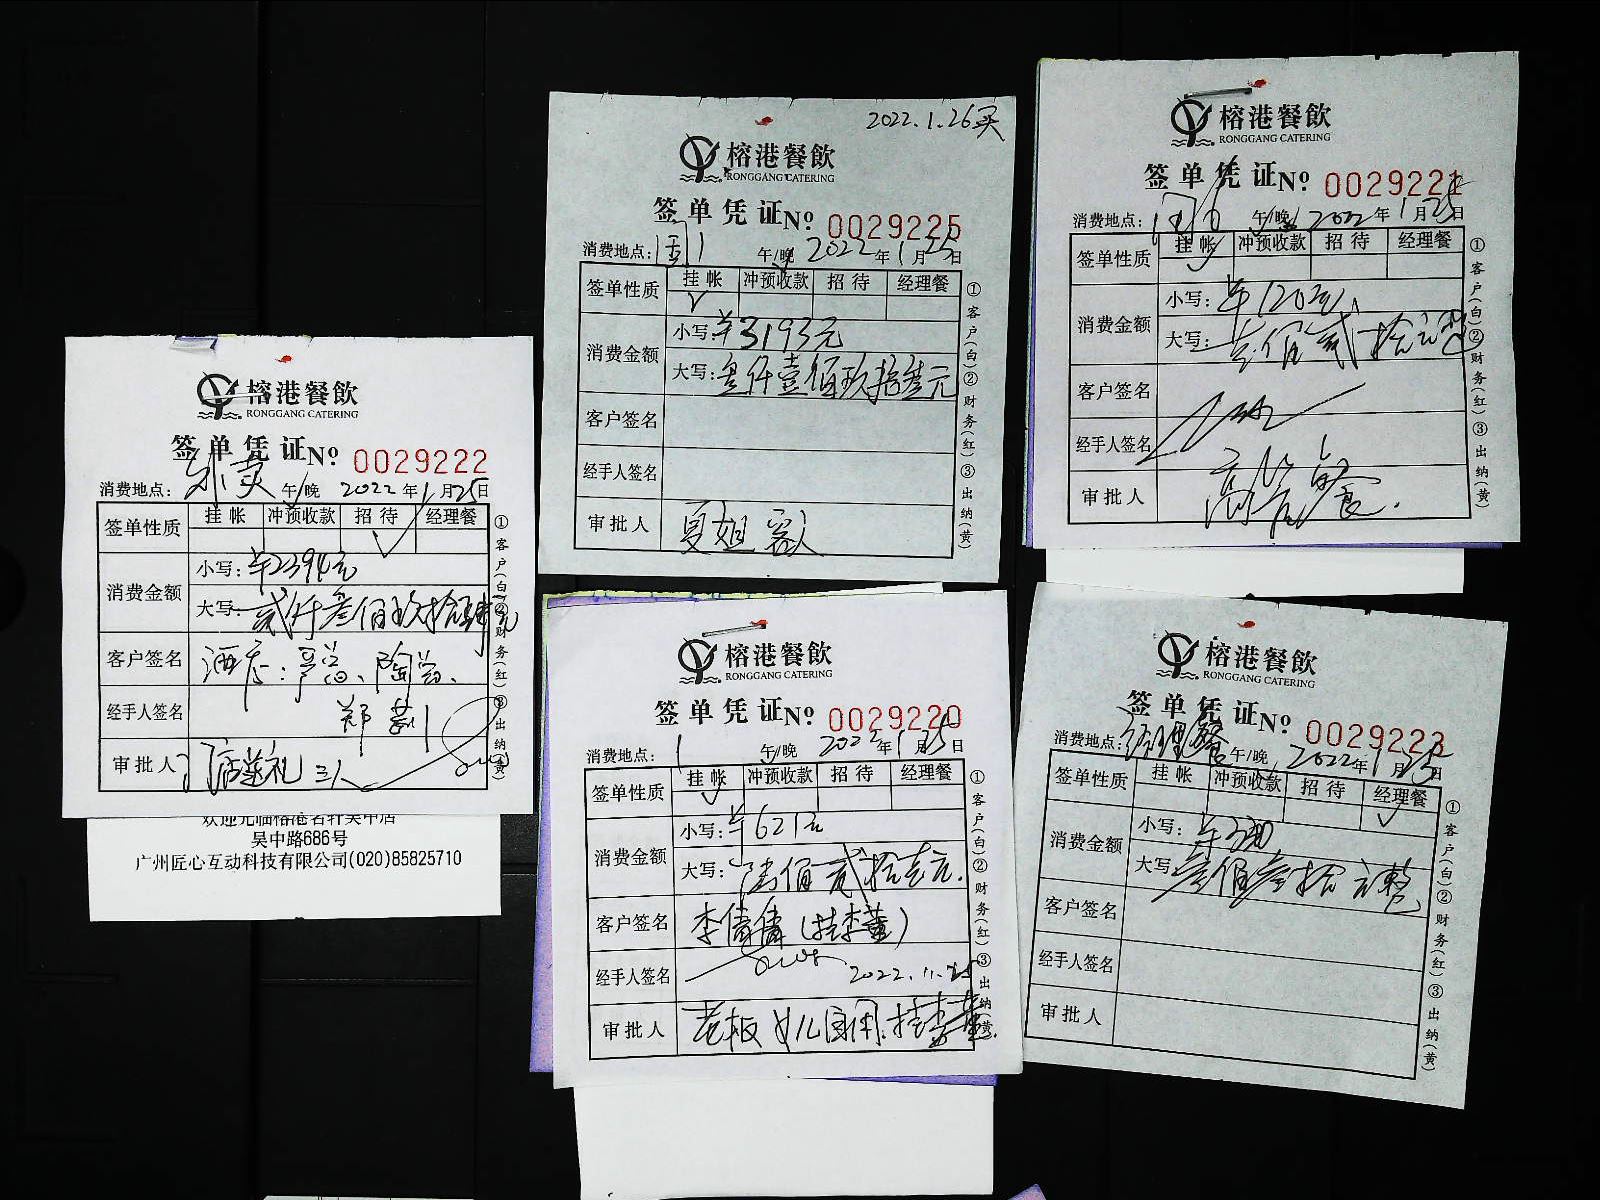 榕港餐飲
RONGGANG CATERING
签单凭证 No. 0029222
消费地点: 外卖 午/晚 2022年1月25日
签单性质 挂帐 冲预收款 招待 经理餐
消费金额
小写: ¥2394元
大写: 贰仟叁佰玖拾肆元
客户签名 酒店: 陶总、
经手人签名 郑
审批人 三人
①客户(白)②财务(红)③出纳(黄)
欢迎光临榕港名轩吴中店
吴中路686号
广州匠心互动科技有限公司(020)85825710
2022.1.26买
榕港餐飲
RONGGANG CATERING
签单凭证 No. 0029225
消费地点: 午/晚 2022年1月25日
签单性质 挂帐 冲预收款 招待 经理餐
消费金额
小写: ¥3193元
大写: 叁仟壹佰玖拾叁元
客户签名
经手人签名
审批人 夏姐 客人
①客户(白)②财务(红)③出纳(黄)
榕港餐飲
RONGGANG CATERING
签单凭证 No. 0029221
消费地点: 午/晚 2022年1月25日
签单性质 挂帐 冲预收款 招待 经理餐
消费金额
小写: ¥120元
大写: 壹佰贰拾元整
客户签名
经手人签名
审批人
①客户(白)②财务(红)③出纳(黄)
榕港餐飲
RONGGANG CATERING
签单凭证 No. 0029220
消费地点: 1 午/晚 2022年1月25日
签单性质 挂帐 冲预收款 招待 经理餐
消费金额
小写: ¥621元
大写: 陆佰贰拾壹元.
客户签名 李倩倩(挂李董)
经手人签名 2022.11.25
审批人 老板女儿 用.挂李董.
①客户(白)②财务(红)③出纳(黄)
榕港餐飲
RONGGANG CATERING
签单凭证 No. 0029223
消费地点: 经理餐 午/晚 2022年1月25日
签单性质 挂帐 冲预收款 招待 经理餐
消费金额
小写: ¥330
大写: 叁佰叁拾元整
客户签名
经手人签名
审批人
①客户(白)②财务(红)③出纳(黄)